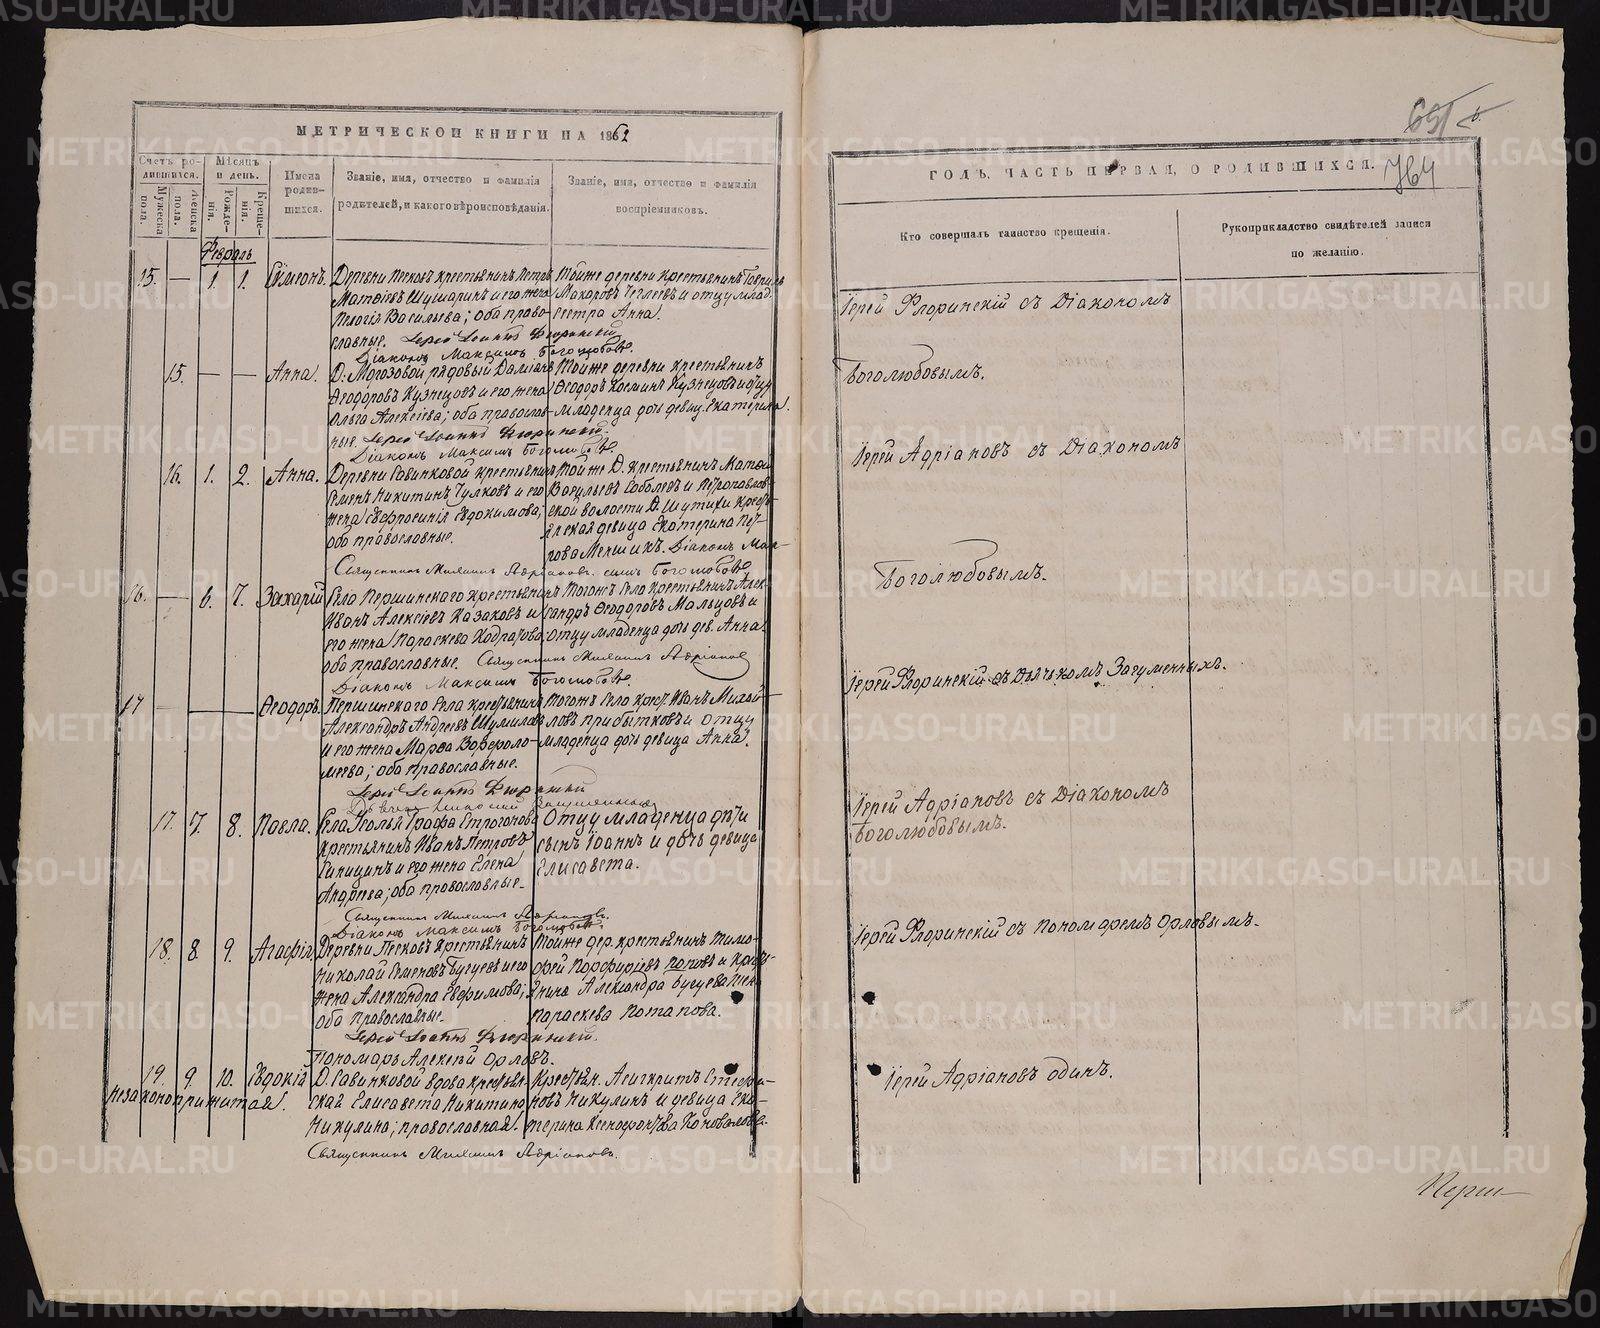 МЕТРИЧЕСКОЙ КНИГИ НА 1862
Счетъ ро-
дившихся.
Мужеска
пола.
Женска
пола.
Мѣсяцъ
и день.
Рожде-
нія.
Креще-
нія.
Имена
родив-
шихся.
Званіе, имя, отчество и фамилія
родителей, и какого вѣроисповѣданія.
Званіе, имя, отчество и фамилія
воспріемниковъ.
Февраль
15. — 1. 1. Сѵмеонъ.
Деревни Песковъ крестьянинъ Петръ
Матѳіевъ Шушаринъ и его жена
Пелагія Васильева; оба право-
славные. Іерей Іоаннъ Флоринскій
Діаконъ Максимъ Боголюбовъ.
Тойже деревни крестьянинъ Гавриилъ
Макаровъ Чеглеевъ и отцу млад.
сестра Анна.
15. — — Анна.
Д. Могозовой рядовый Даміанъ
Ѳеодоровъ Кузнецовъ и его жена
Ольга Алексіева; оба православ-
ные. Іерей Іоаннъ Флоринскій.
Діаконъ Максимъ Боголюбовъ.
Тойже деревни крестьянинъ
Ѳеодоръ Косминъ Кузнецовъ и отцу
младенца дочь девиц. Екатерина.
16. 1. 2. Анна.
Деревни Савинковой крестьянинъ
Семенъ Никитинъ Чулковъ и его
жена Евфросинія Евдокимова;
оба православные.
Священникъ Михаилъ Адріановъ.
Тойже Д. крестьянинъ Матѳей
Васильевъ Соболевъ и Петропавлов-
ской волости Д. Шутихи кресть-
янская девица Екатерина Пет-
рова Меншихъ. Діаконъ Мак-
симъ Боголюбовъ
16. — 6. 7. Захарій
Села Першинскаго крестьянинъ
Иванъ Алексіевъ Казаковъ и
его жена Параскева Кодратова;
оба православные. Священникъ Михаилъ Адріановъ
Діаконъ Максимъ Боголюбовъ.
Тогожъ Села крестьянинъ Алек-
сандръ Ѳеодоровъ Мальцовъ и
отцу младенца дочь дев. Анна.
17 — — — Ѳеодоръ.
Першинскаго Села крестьянинъ
Александръ Андреевъ Шумиловъ
и его жена Марѳа Варѳоло-
меева; оба православные.
Іерей Іоаннъ Флоринскій
Тогожъ Села крест. Иванъ Михай-
ловъ Прибытковъ и отцу
младенца дочь девица Анна.
17. 7. 8. Павла.
Села Усолья Графа Строгонова
крестьянинъ Иванъ Петровъ
Синицинъ и его жена Елена
Андреева; оба православные.
Священникъ Михаилъ Адріановъ.
Діаконъ Максимъ Боголюбовъ.
Отцу младенца дѣти
сынъ Іоаннъ и дочь девица
Елисавета.
18. 8. 9. Агафія,
Деревни Песковъ крестьянинъ
Николай Семеновъ Бугуевъ и его
жена Александра Евфимова;
оба православные.
Іерей Іоаннъ Флоринскій.
Пономарь Алексій Орловъ.
Тойже дер. крестьянинъ Тимо-
фей Порфиріевъ Поповъ и крест-
янина Александра Бугуева жена
Параскева Потапова.
19. 9. 10. Евдокія
незаконоприжитая.
Д. Савинковой вдова крестьян-
ская Елисавета Никитина
Никулина; православная.
Священникъ Михаилъ Адріановъ.
Крестьян. Асигкритъ Стефа-
новъ Никулинъ и девица Ека-
терина Ксенофонтова Коновалова.
651
764
ГОДЪ, ЧАСТЬ ПЕРВАЯ, О РОДИВШИХСЯ.
Кто совершалъ таинство крещенія.
Рукоприкладство свидѣтелей записи
по желанію.
Іерей Флоринскій съ Діакономъ
Боголюбовымъ.
Іерей Адріановъ съ Діакономъ
Боголюбовымъ.
Іерей Флоринскій съ Дьячкомъ Загуменныхъ.
Іерей Адріановъ съ Діакономъ
Боголюбовымъ.
Іерей Флоринскій съ Пономаремъ Орловымъ.
Іерей Адріановъ одинъ.
Перш-
METRIKI.GASO-URAL.RU